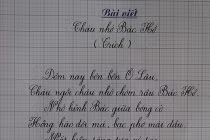 Bài viết
Cháu nhớ Bác Hồ
( Trích )
Đêm nay bên bến Ô Lâu,
Cháu ngồi cháu nhớ chòm râu Bác Hồ.
Nhớ hình Bác giữa bóng cờ
Hồng hào đôi má, bạc phơ mái đầu.